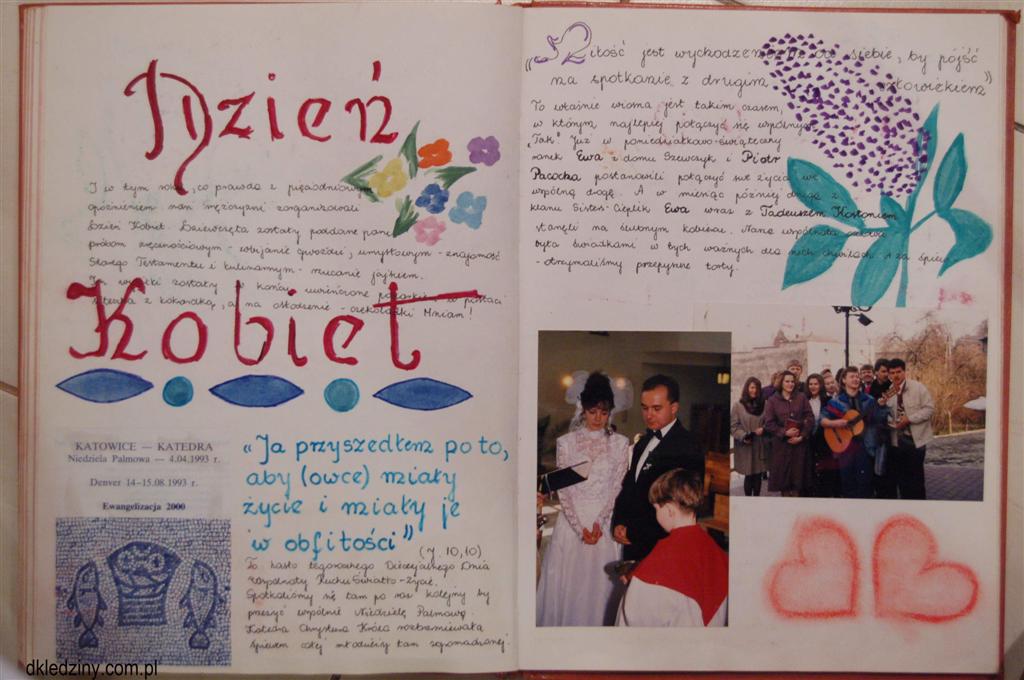 Dzień
I w tym roku, co prawda z pięciodniowym
opóźnieniem nasi mężczyźni zorganizowali
Dzień Kobiet. Dziewczęta zostały poddane paru
próbom zręcznościowym - wbijanie gwoździ, umysłowym - znajomość
Starego Testamentu i kulinarnym - rzucanie jajkiem.
wysiłki zostały w końcu uwieńczone w postaci
z kokardką, a na osłodzenie - czekoladki Mniam!
Kobiet
KATOWICE — KATEDRA
Niedziela Palmowa — 4.04.1993 r.
Denver 14-15.08.1993 r.
Ewangelizacja 2000
«Ja przyszedłem po to,
aby (owce) miały
życie i miały je
w obfitości»
(J. 10,10)
To hasło tegorocznego Diecezjalnego Dnia
Wspólnoty Ruchu Światło-Życie.
Spotkaliśmy się tam po raz kolejny by
przeżyć wspólnie Niedzielę Palmową.
Katedra Chrystusa Króla rozbrzmiewała
śpiewem całej młodzieży tam zgromadzonej.
„Miłość jest wychodzeniem od siebie, by pójść
na spotkanie z drugim człowiekiem”
To właśnie wiosna jest takim czasem,
w którym najlepiej połączyć się wspólnym
„Tak”. Już w poniedziałkowo-świąteczny
ranek Ewa z domu Szewczyk i Piotr
Pacocha postanowili połączyć swe życia we
wspólną drogę. A w miesiąc później druga z
klanu Sisters-Cieplik Ewa wraz z Tadeuszem Kostoniem
stanęli na ślubnym kobiercu. Nasza wspólnota
była świadkami w tych ważnych dla nich chwilach. A za śpiew
- otrzymaliśmy przepyszne torty.
dkledziny.com.pl